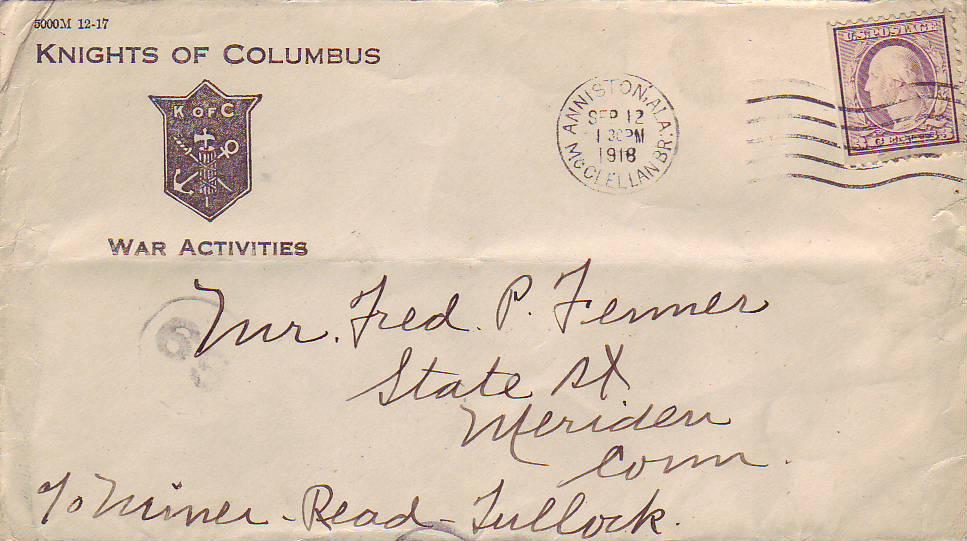 5000M 12-17
KNIGHTS OF COLUMBUS
K OF C
WAR ACTIVITIES
ANNISTON, ALA.
SEP 12
1 30 PM
1918
MCCLELLAN BR.
U.S. POSTAGE
3 CENTS 3
Mr. Fred. P. Fenner
State St
Meriden
Conn.
c/o Miner - Read - Tullock.